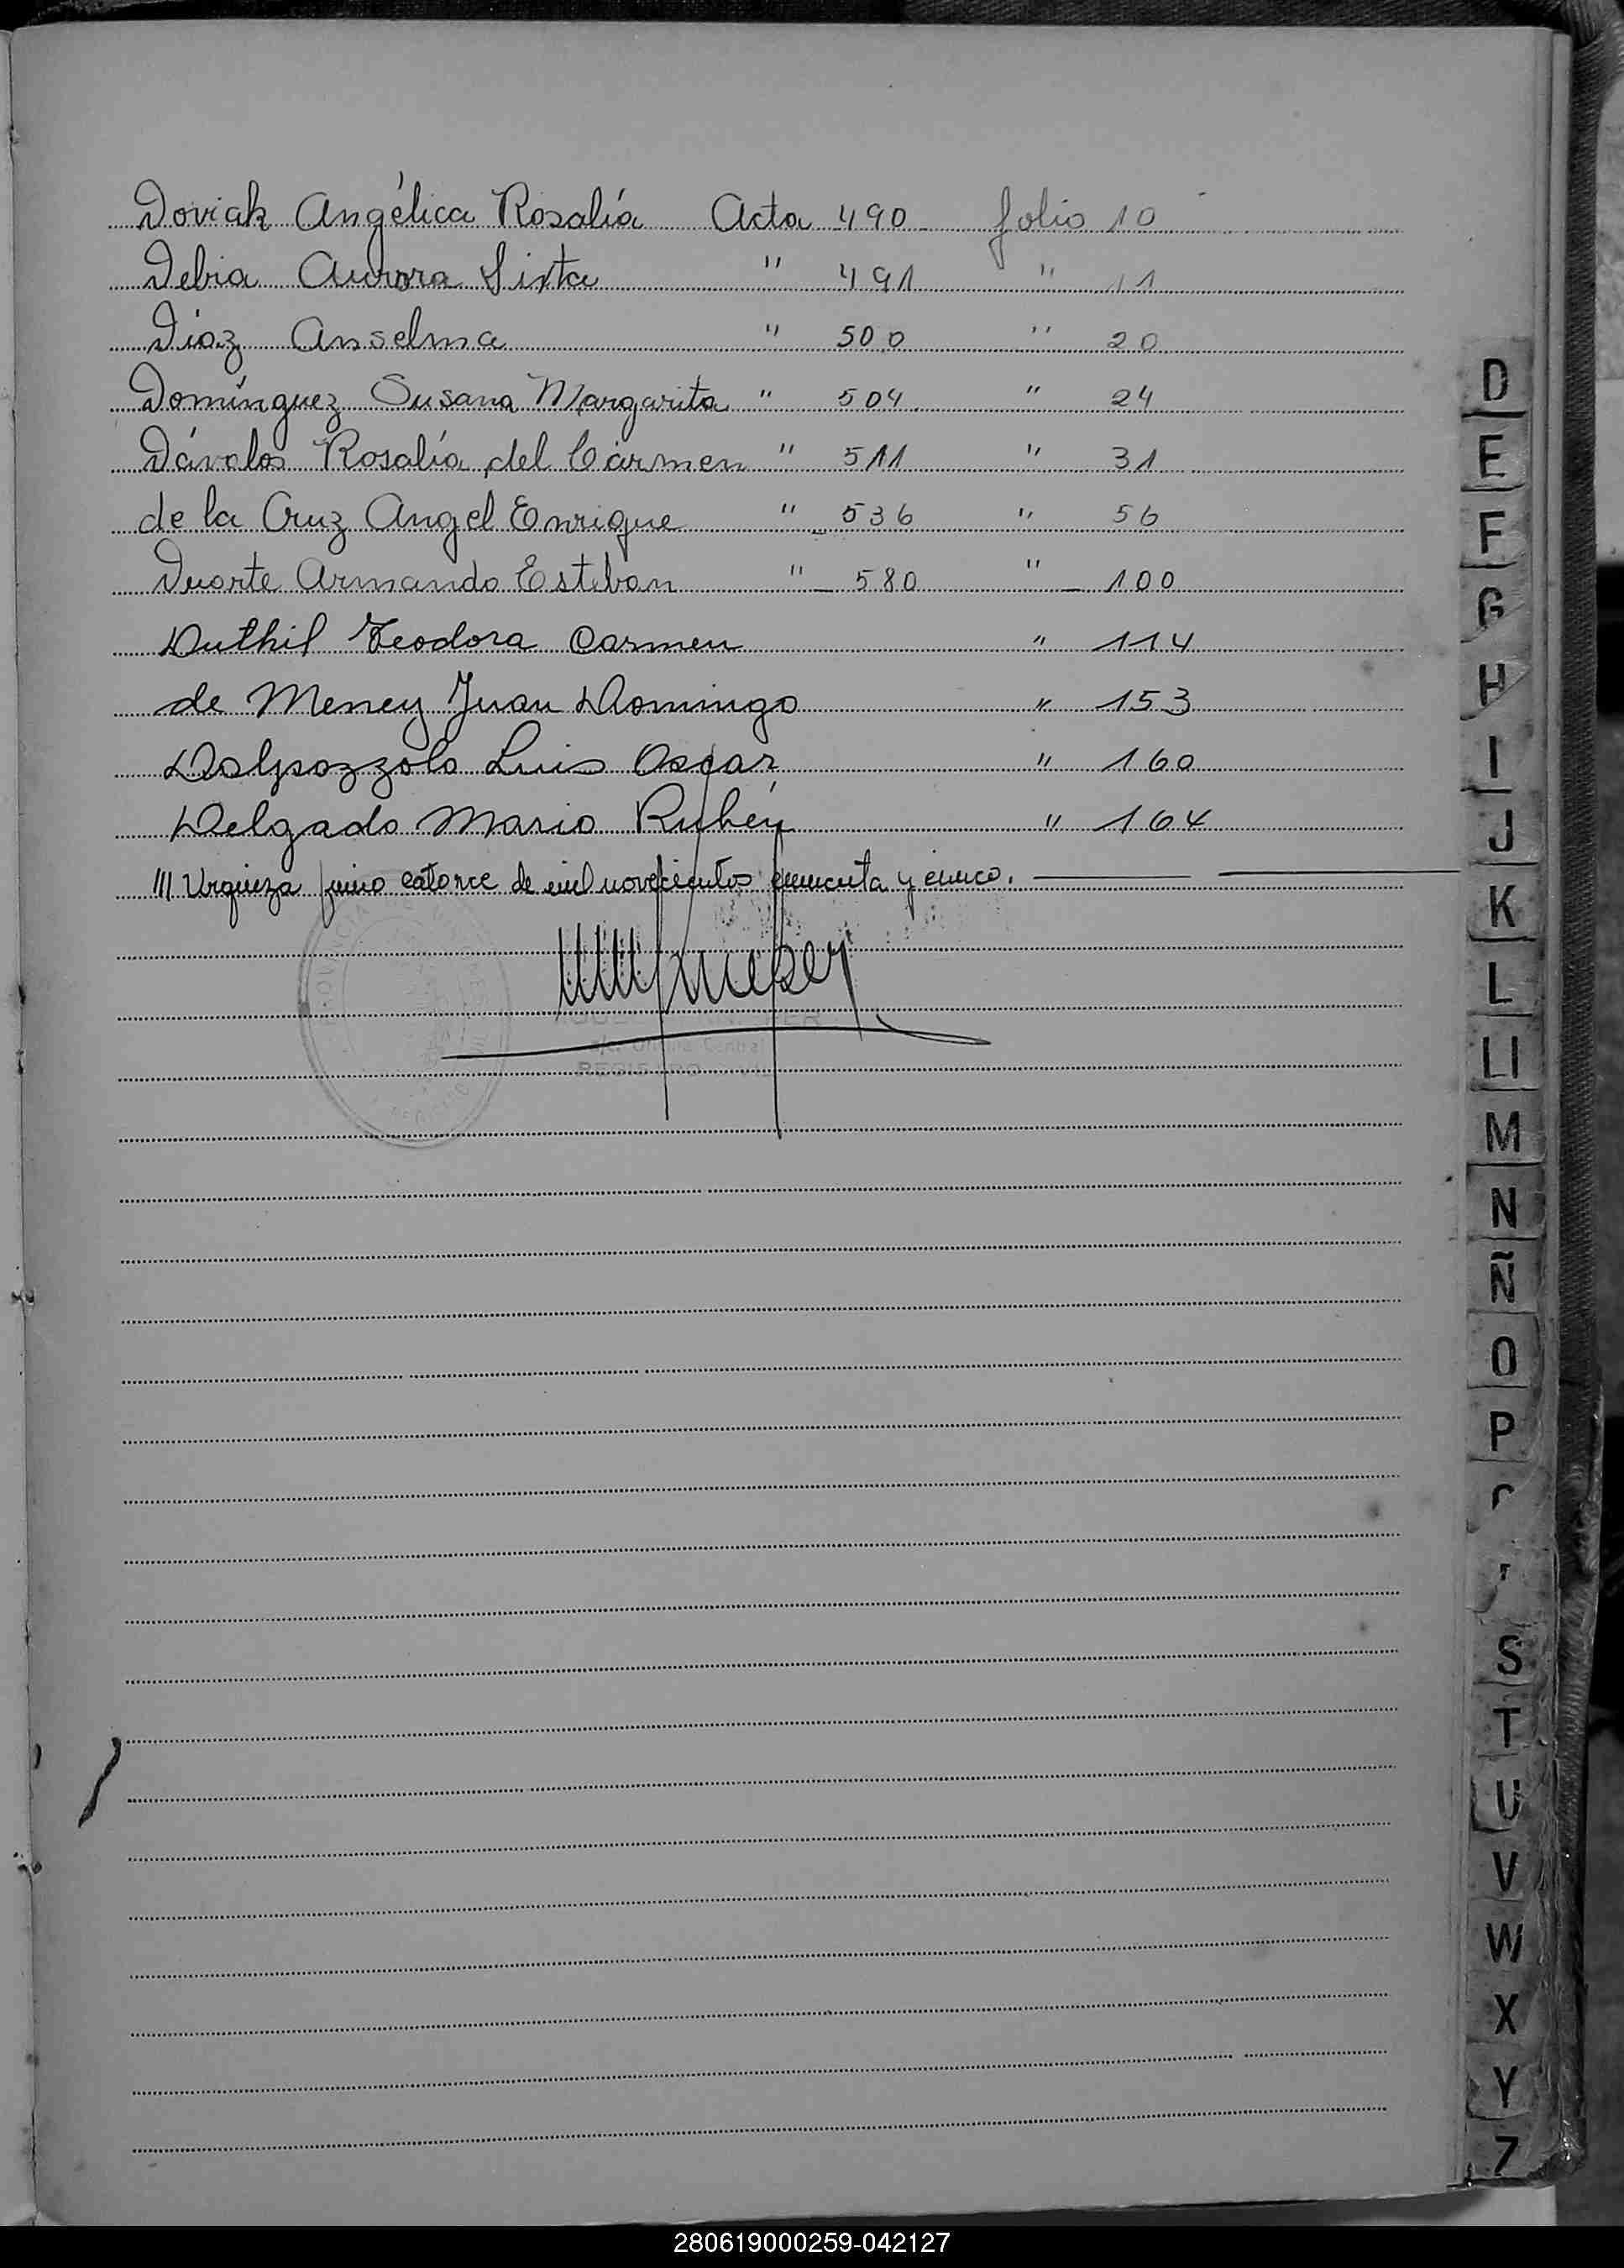 Doviak Angélica Rosalía Acta 490 folio 10
Debia Aurora Sixta " 491 " 11
Diaz Anselma " 500 " 20
Domínguez Susana Margarita " 504 " 24
Dávalos Rosalía del Cármen " 511 " 31
de la Cruz Angel Enrique " 536 " 56
Duarte Armando Esteban " 580 " 100
Duthil Teodora Carmen " 114
de Meney Juan Domingo " 153
Dalpozzolo Luis Oscar " 160
Delgado Mario Rubén " 164
/// Urquiza junio catorce de mil novecientos cincuenta y cinco.
Oficina Central
REGISTRO CIVIL
D
E
F
G
H
I
J
K
L
Ll
M
N
Ñ
O
P
S
T
U
V
W
X
Y
Z
280619000259-042127